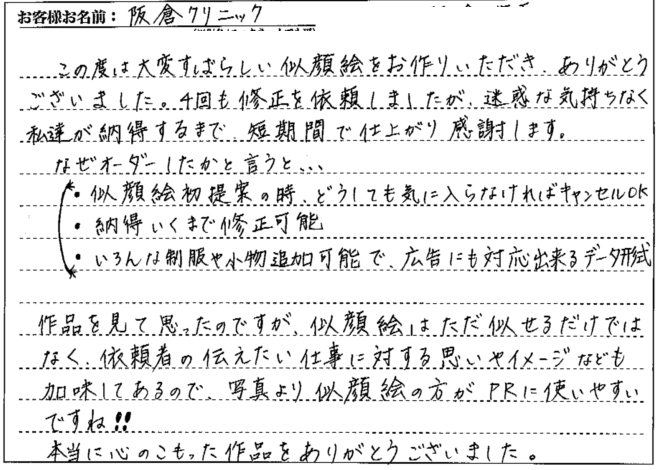 お客様お名前：阪倉クリニック
この度は大変すばらしい似顔絵をお作りいただき、ありがとう
ございました。4回も修正を依頼しましたが、迷惑な気持ちなく
私達が納得するまで、短期間で仕上がり感謝します。
なぜオーダーしたかと言うと、、、
・似顔絵初提案の時、どうしても気に入らなければキャンセルOK
・納得いくまで修正可能
・いろんな制服や小物追加可能で、広告にも対応出来るデータ形式
作品を見て思ったのですが、似顔絵はただ似せるだけでは
なく、依頼者の伝えたい仕事に対する思いやイメージなども
加味してあるので、写真より似顔絵の方がPRに使いやすい
ですね!!
本当に心のこもった作品をありがとうございました。